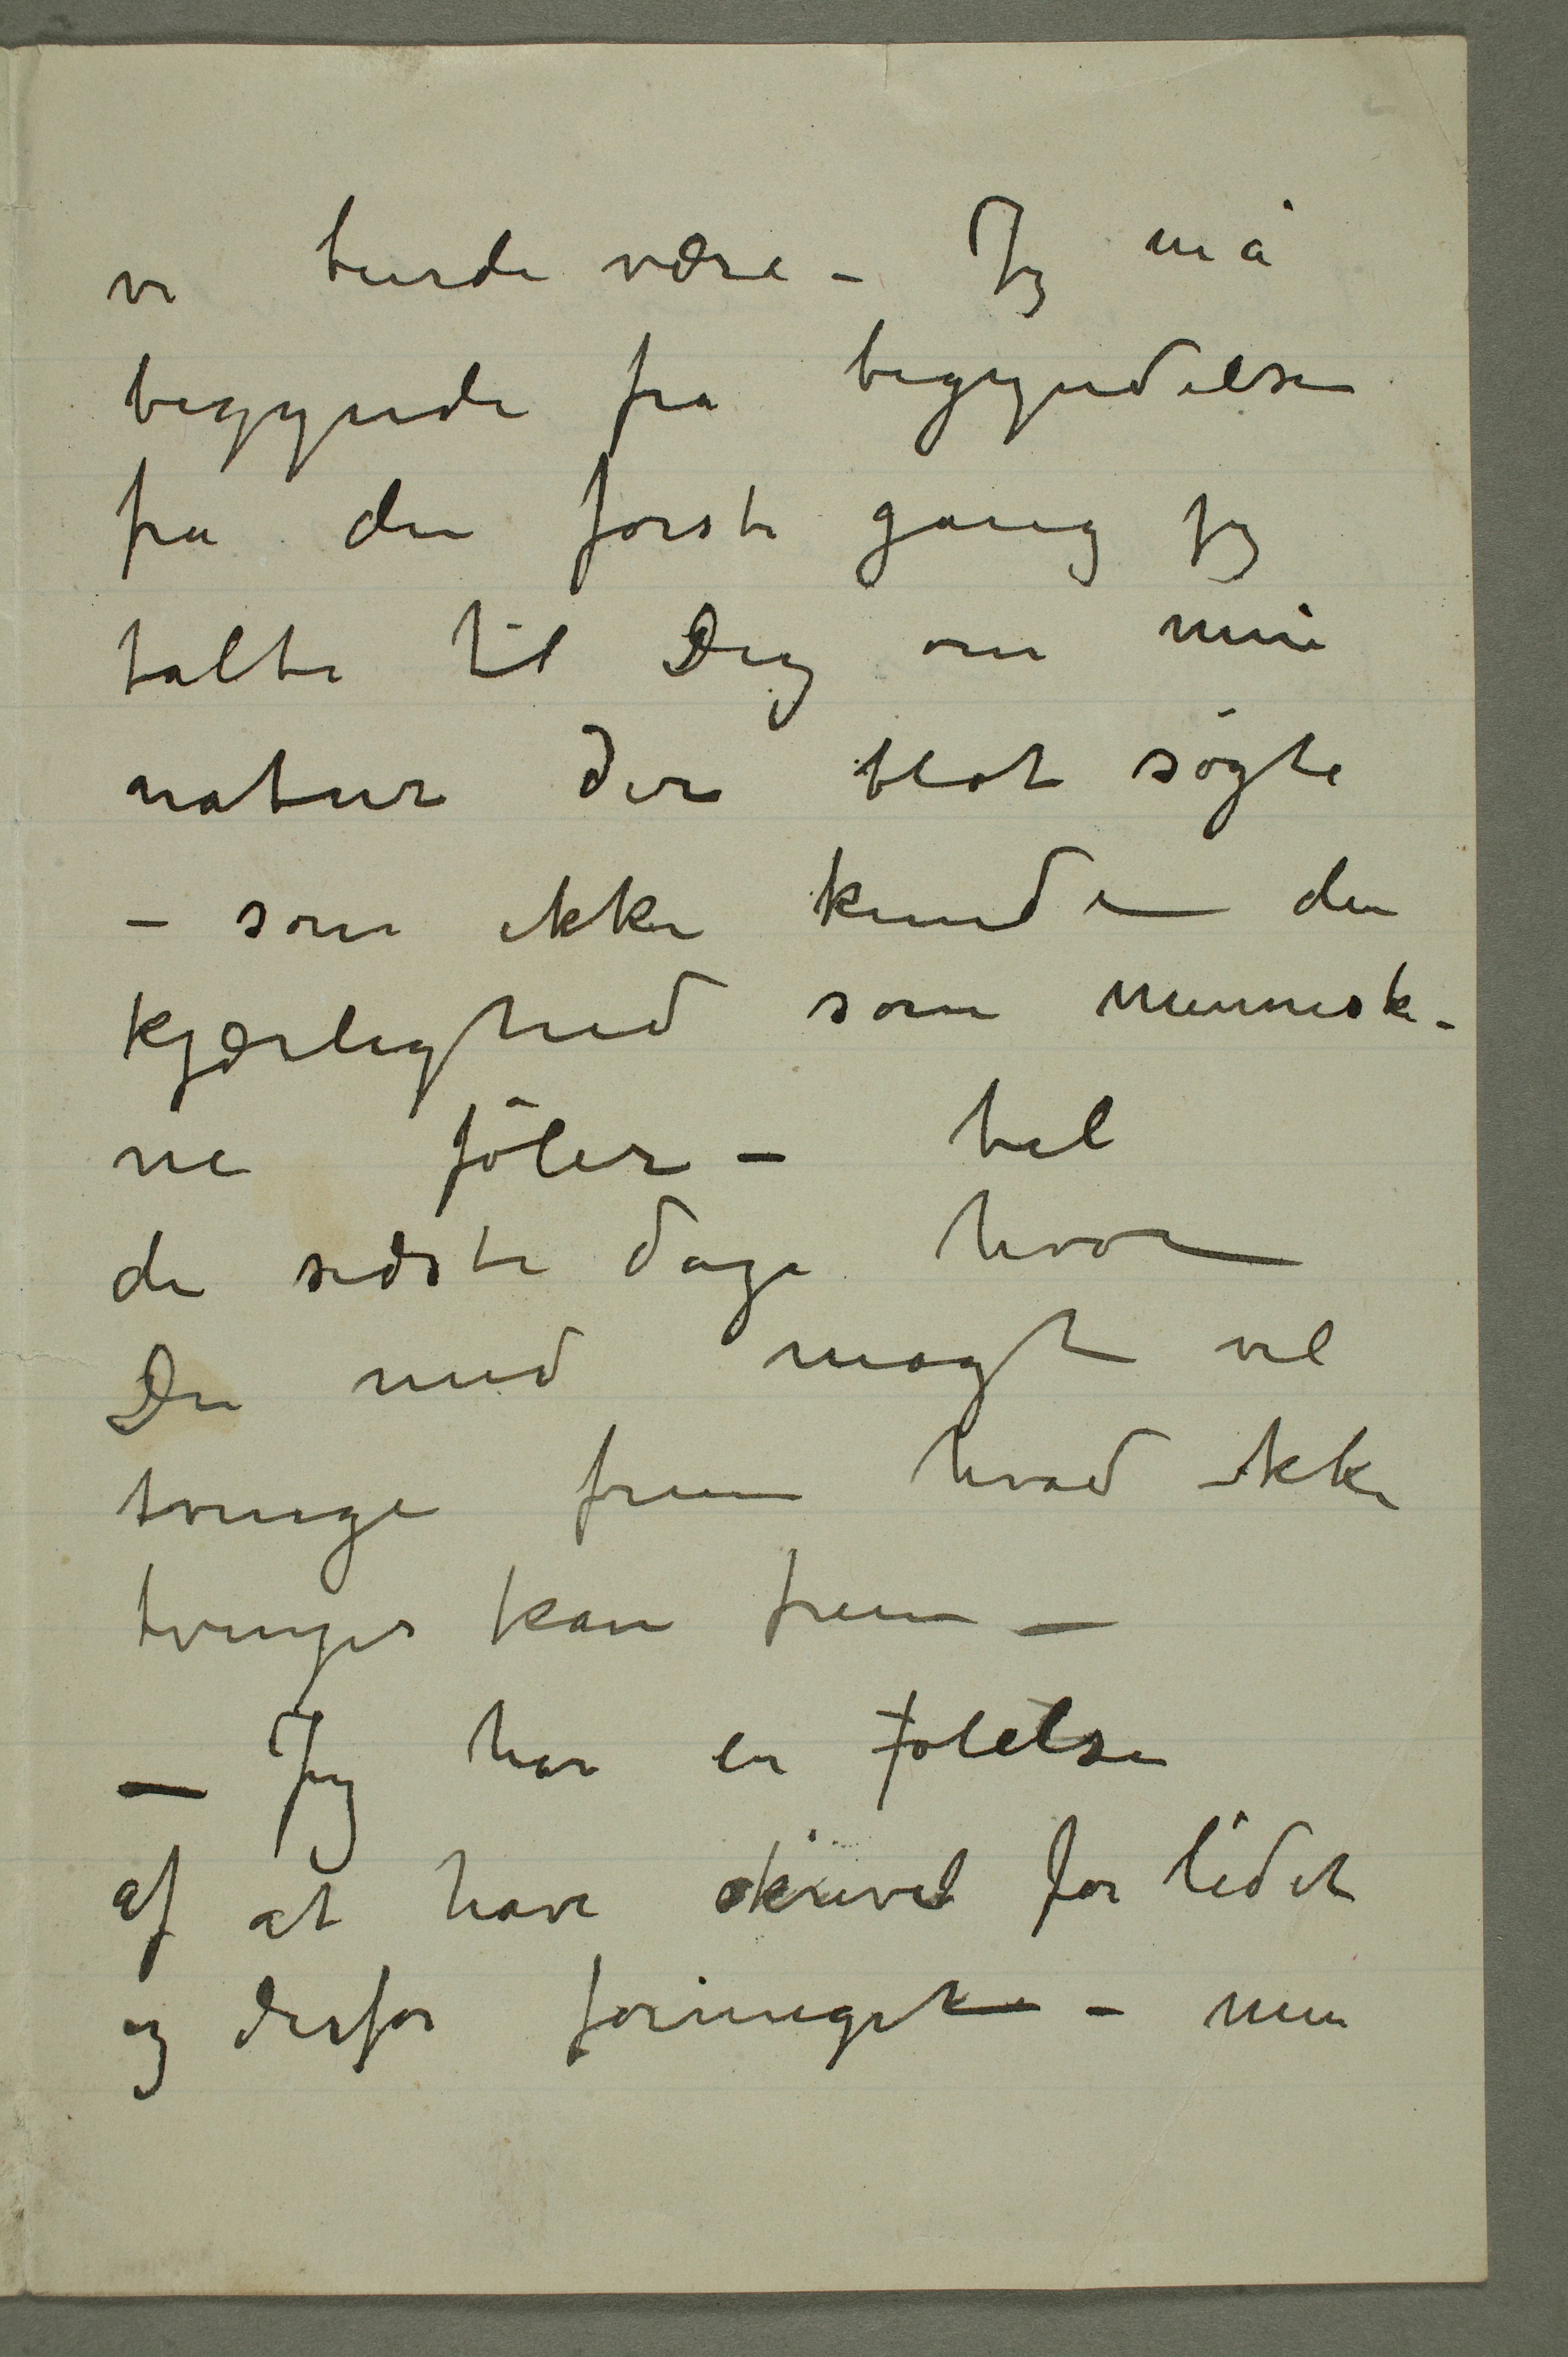 vi burde være – Jeg må
begynde fra begyndelsen
fra den første gang jeg
talte til Dig om min
natur der blot søgte
– som ikke kunde den
kjærlighed som menneske-
ne føler – til
de sidste dage hvor
Du med magt vil
tvinge frem hvad ikke
tvinges kan frem –
– Jeg har en følelse
af at have skrevet for lidet
og derfor foringet – min